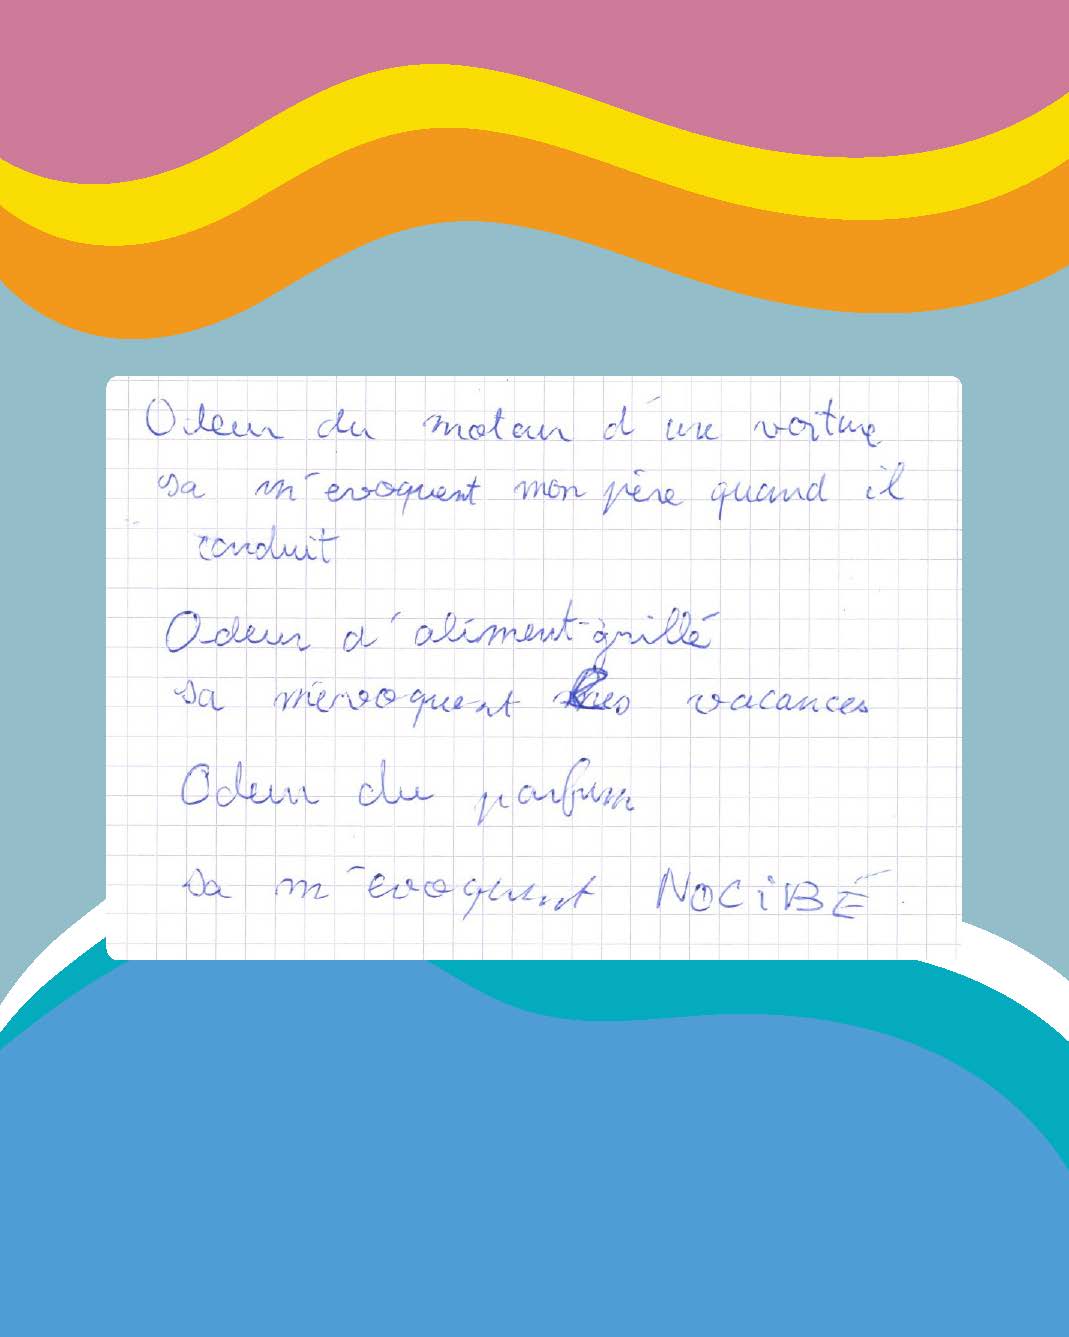 Odeur du moteur d'une voiture
sa m'evoquent mon père quand il
conduit
Odeur d'aliment grillé
sa m'evoquent les vacances
Odeur du parfum
sa m'evoquent NOCiBÉ